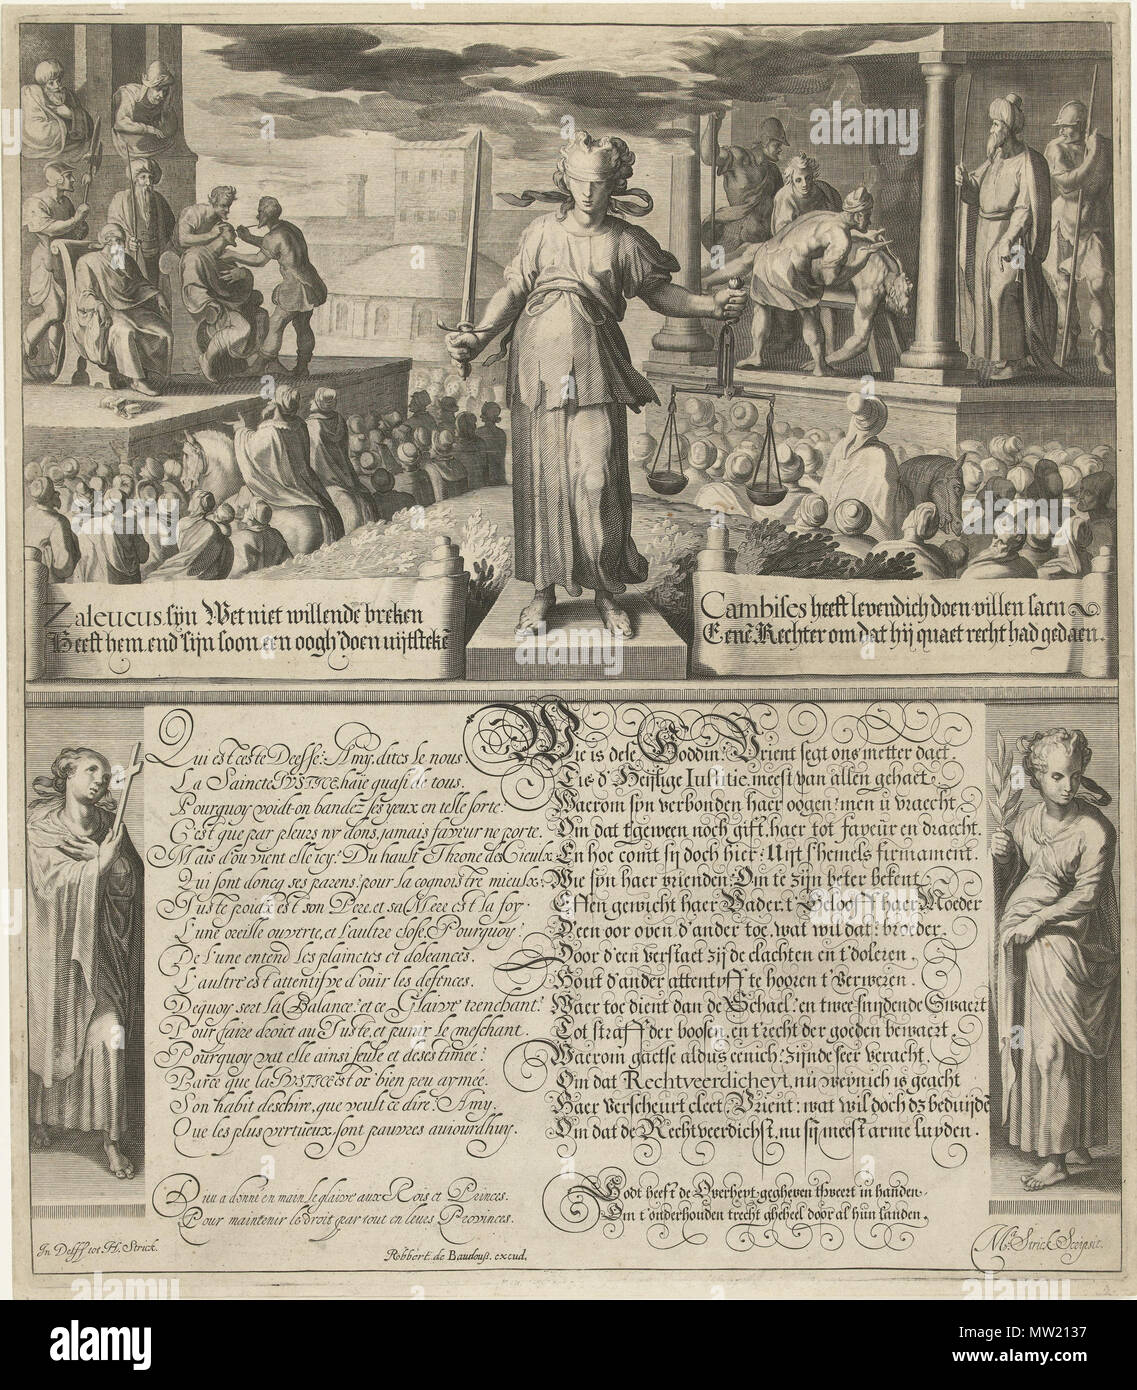 Zaleucus sijn Wet niet willende breken
Heeft hem end' sijn soon een oogh' doen uijtstekē
Cambises heeft levendich doen villen saen
Eenē Rechter om dat hij quaet recht had gedaen.
Qui est ceste Deesse? Amy, dites le nous.
La Saincte IVSTICE, haïe quasi de tous.
Pourquoy voidt on bandez ses yeux en telle sorte?
C'est que par pleurs ny dons, jamais faveur ne porte.
Mais d'ou vient elle icy? Du hault Throne des Cieulx
Qui sont doncq ses parens? pour la cognoistre mieulx.
Juste poidx est son Pere, et sa Mere est la foy.
L'une oreille ouverte, et l'aultre close, Pourquoy?
De l'une entend les plainctes et doleances.
L'aultre est attentifve d'ouir les defences.
Dequoy sert sa Balance? et ce Glaive trenchant?
Pour faire droict au Juste, et punir le meschant.
Pourquoy vat elle ainsi seule et desestimée?
Parce que la IVSTICE est or' bien peu armée.
Son habit deschiré, que veult ce dire? Amy.
Que les plus vertueux, sont pauvres aujourdhuy.
Dieu a donné en main, le glaive aux Rois et Princes.
Pour maintenir le droit par tout en leurs Provinces.
Wie is dese Goddin? Vrient segt ons metter daet.
Tis d' Heijlige Iustitie, meest van allen gehaet.
Waerom sijn verbonden haer oogen? men u vraecht,
Om dat tgeween noch gift, haer tot faveur en draecht.
En hoe comt sij doch hier? Uijt shemels firmament.
Wie sijn haer vrienden? Om te zijn beter bekent.
Effen gewicht haer Vader, t' Geloof haer Moeder
Deen oor open d'ander toe, wat wil dat? broeder.
Door d'een verstaet zij de clachten en t'doleren.
Hout d'ander attentyff te hooren t'verweren.
Waer toe dient dan de Schael? en twee snijdende Swaert
Tot straff der boosen, en t'recht der goeden bewaert.
Waerom gaetse aldus eenich? zijnde seer veracht.
Om dat Rechtveerdicheyt, nu weynich is geacht
Haer verscheurt cleet, Vrient: wat wil doch dz beduijdē
Om dat de Rechtveerdichst, nu sij meest arme luyden.
Godt heeft de Overheyt gegheven tsweert in handen.
Om t'onderhouden trecht gheheel door al hun landen.
In Delff tot H. Strick.
Robbert. de Baudous. excud.
Mr. Strick Scripsit.
alamy
Image ID: MW2137
www.alamy.com